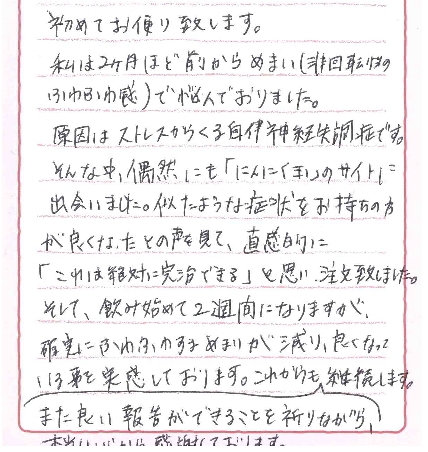 初めてお便り致します。
私は2ヶ月ほど前からめまい(非回転性の
ふわふわ感)で悩んでおりました。
原因はストレスからくる自律神経失調症です。
そんな中、偶然にも「にんにく玉」のサイトに
出会いました。似たような症状をお持ちの方
が良くなったとの声を見て、直感的に
「これは絶対に完治できる」と思い、注文致しました。
そして、飲み始めて2週間になりますが、
確実にふわふわするめまいが減り、良くなって
いる事を実感しております。これからも継続します。
また良い報告ができることを祈りながら、